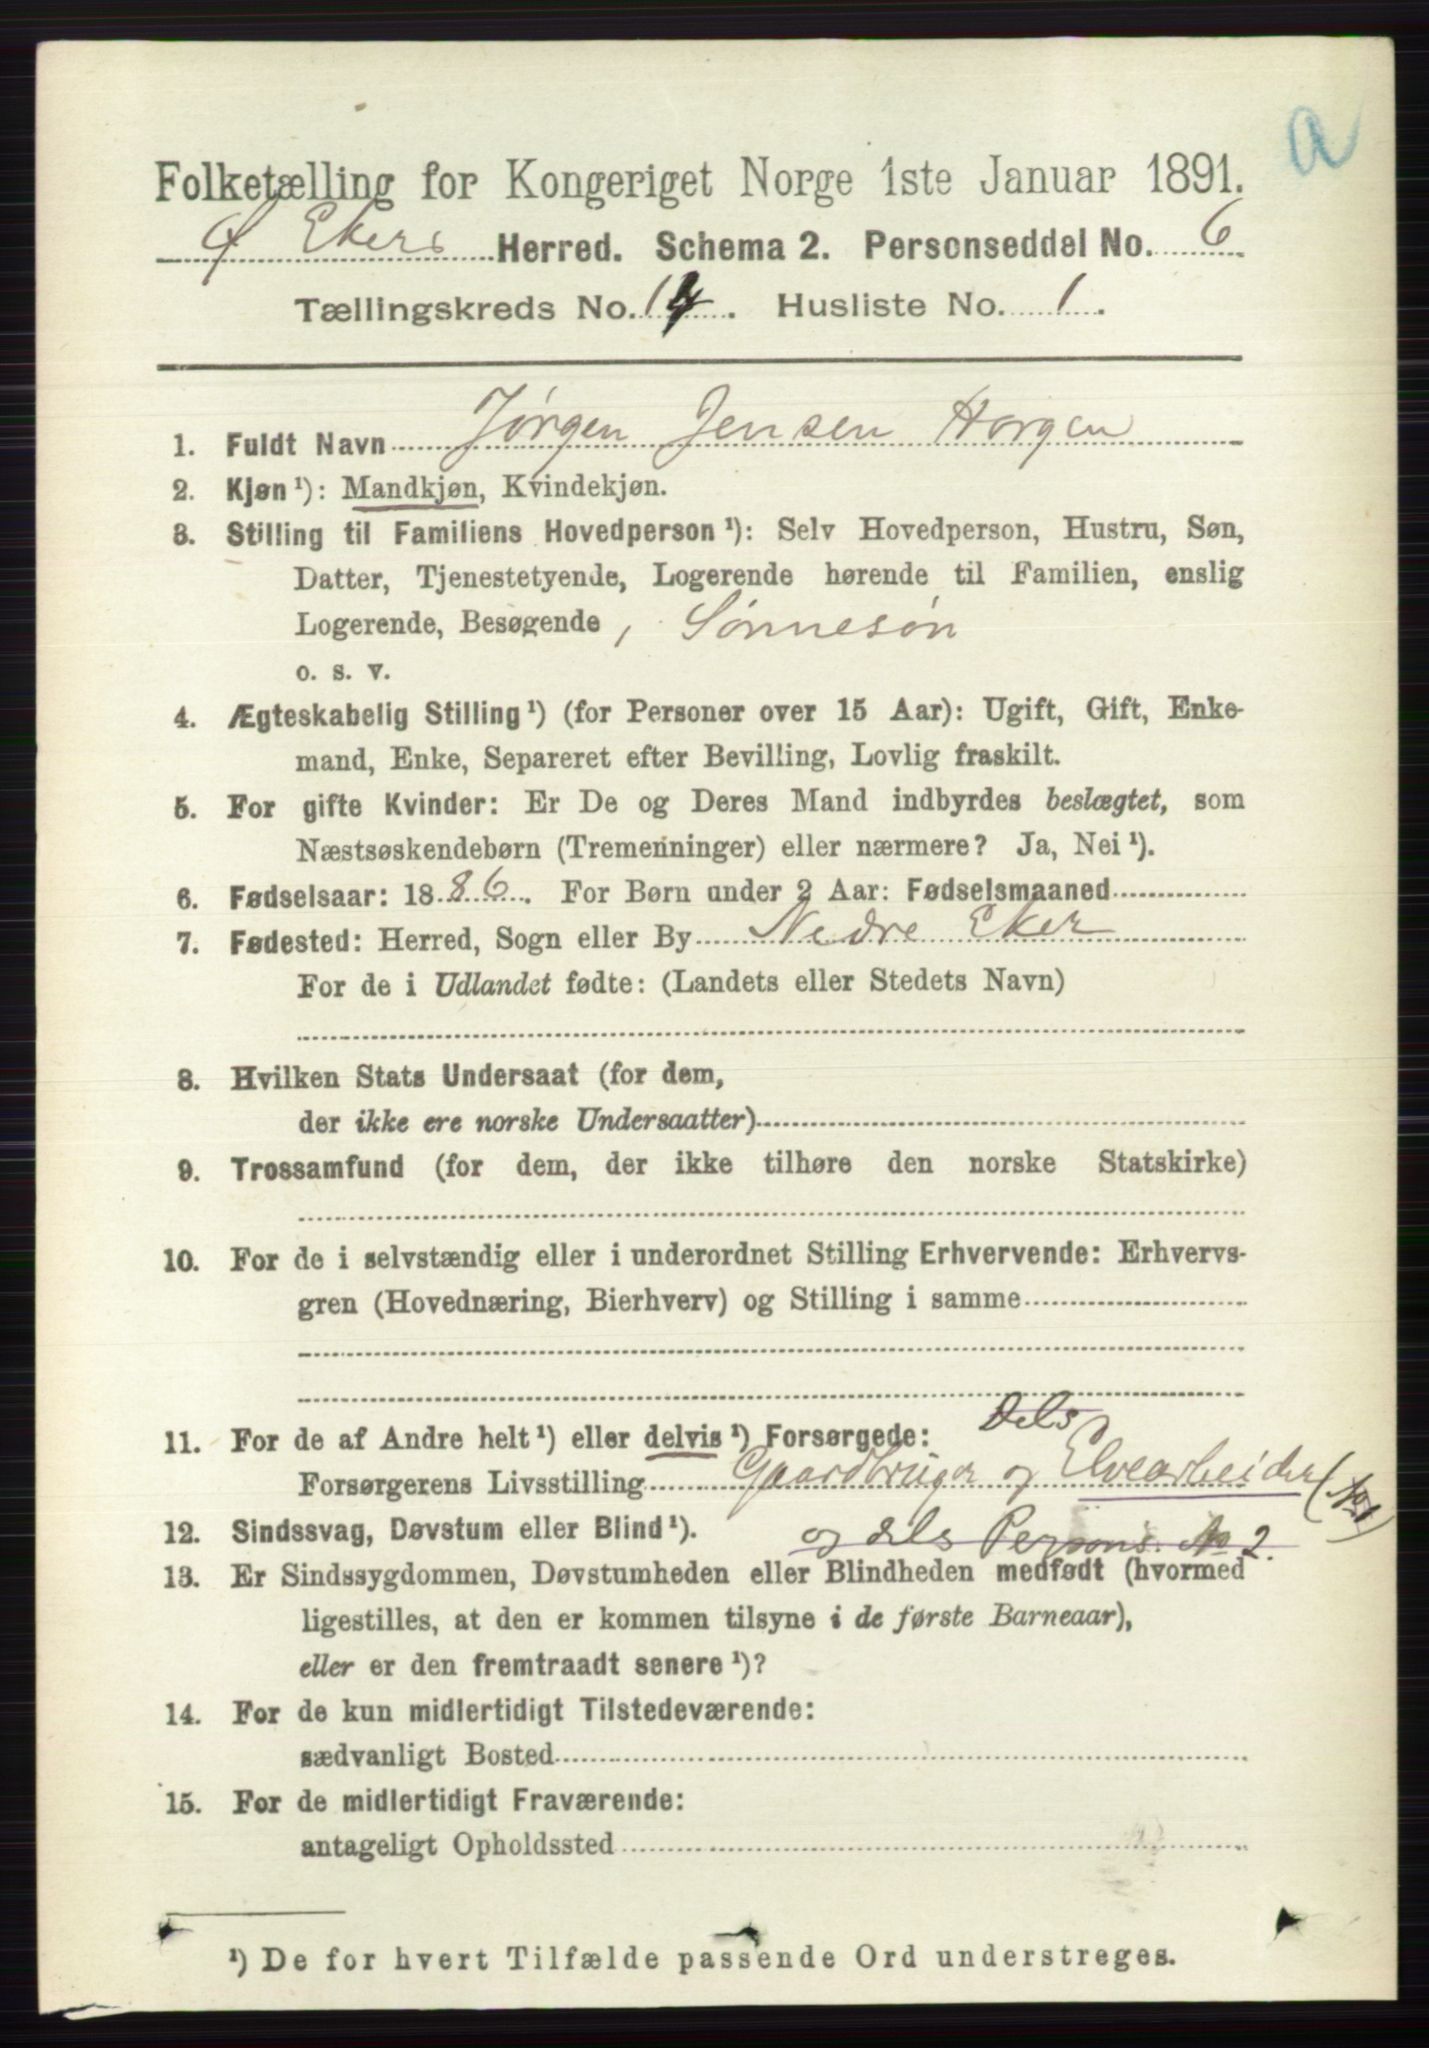 a
Folketælling for Kongeriget Norge 1ste Januar 1891.
Ø Ekers Herred. Schema 2. Personseddel No. 6
Tællingskreds No. 14. Husliste No. 1.
1. Fuldt Navn Jørgen Jensen Horgen
2. Kjøn ¹): Mandkjøn, Kvindekjøn.
3. Stilling til Familiens Hovedperson ¹): Selv Hovedperson, Hustru, Søn,
Datter, Tjenestetyende, Logerende hørende til Familien, enslig
Logerende, Besøgende, Sønnesøn
o. s. v.
4. Ægteskabelig Stilling ¹) (for Personer over 15 Aar): Ugift, Gift, Enke-
mand, Enke, Separeret efter Bevilling, Lovlig fraskilt.
5. For gifte Kvinder: Er De og Deres Mand indbyrdes beslægtet, som
Næstsøskendebørn (Tremenninger) eller nærmere? Ja, Nei ¹).
6. Fødselsaar: 1886. For Børn under 2 Aar: Fødselsmaaned
7. Fødested: Herred, Sogn eller By Nedre Eker
For de i Udlandet fødte: (Landets eller Stedets Navn)
8. Hvilken Stats Undersaat (for dem,
der ikke ere norske Undersaatter)
9. Trossamfund (for dem, der ikke tilhøre den norske Statskirke)
10. For de i selvstændig eller i underordnet Stilling Erhvervende: Erhvervs-
gren (Hovednæring, Bierhverv) og Stilling i samme
11. For de af Andre helt ¹) eller delvis ¹) Forsørgede: Dels
Forsørgerens Livsstilling Gaardbruger og Elvearbeider (No 1)
12. Sindssvag, Døvstum eller Blind ¹). og dels Persons. No 2.
13. Er Sindssygdommen, Døvstumheden eller Blindheden medfødt (hvormed
ligestilles, at den er kommen tilsyne i de første Barneaar),
eller er den fremtraadt senere ¹)?
14. For de kun midlertidigt Tilstedeværende:
sædvanligt Bosted
15. For de midlertidigt Fraværende:
antageligt Opholdssted
¹) De for hvert Tilfælde passende Ord understreges.